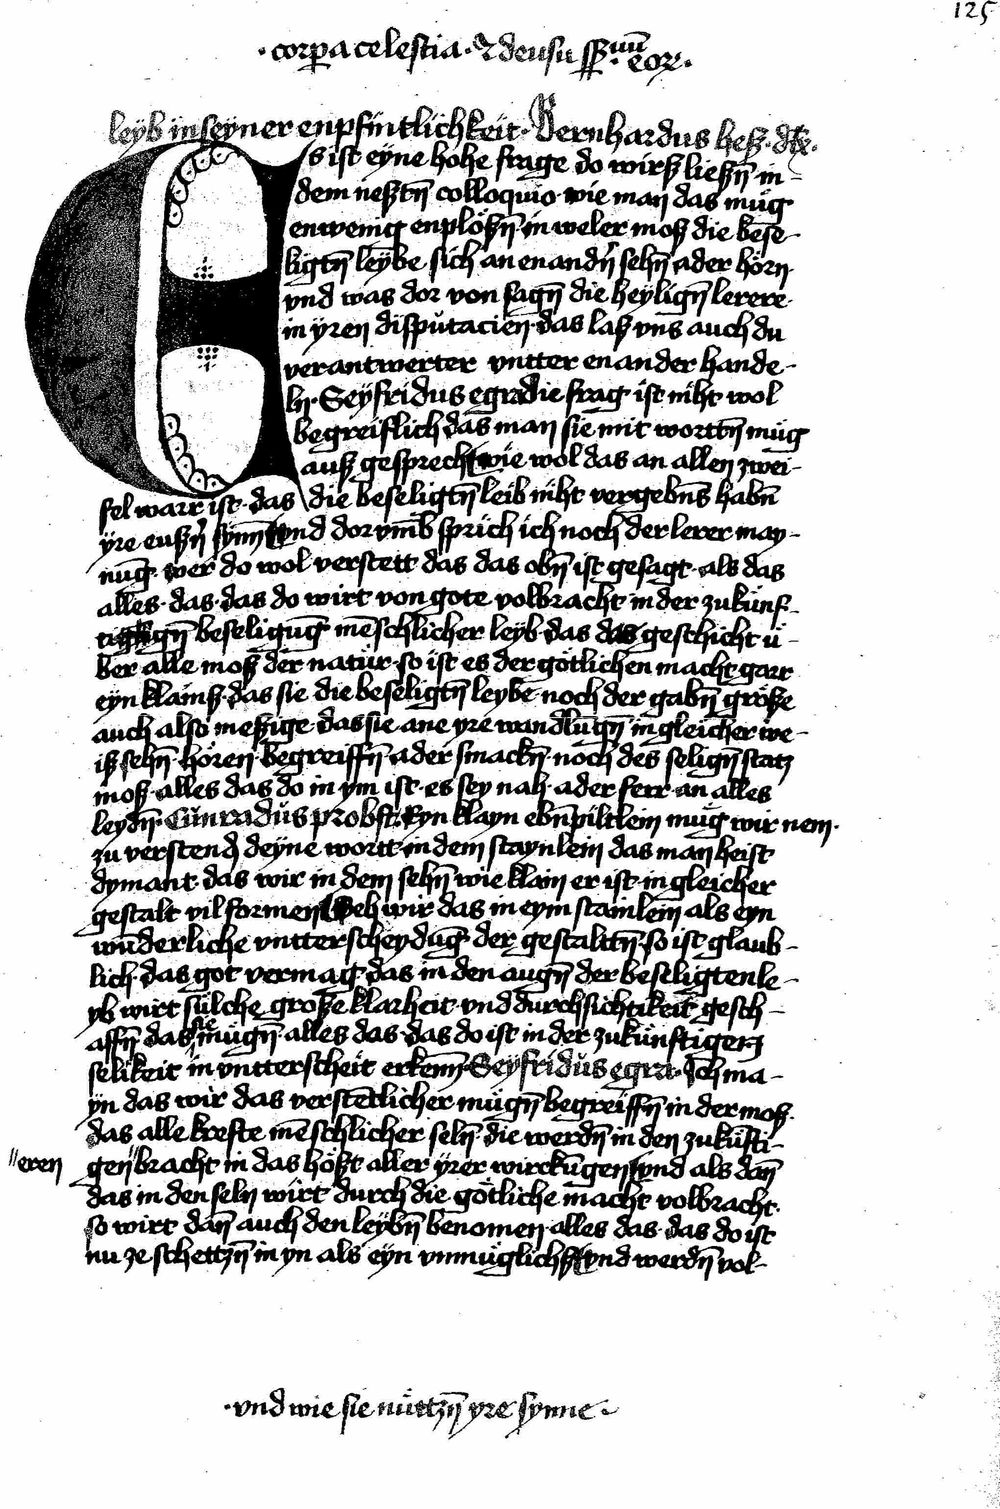 125
·corpora celestia· ⁊ de usu
leÿb in seÿner enpfintlichkeit· Bernhardus heß·
Es ist eÿne hohe frage do wirß ließn̄ in-
dem neßtn̄ colloquio wie man das mug
enwenig enplößn̄ in weler moß die bese-
ligtn̄ leÿbe sich an enandn̄ sehn̄ ader hörn
vnd was dor von sagn̄ die heÿlign̄ lerere·
in ÿren disputacien das laß vns auch du
verantwerter vntter enander hande-
ln· Seÿfridus egra die frag ist niht wol
begreiflich das man sie mit worttn̄ mug
auß gesprechn̄ wie wol das an allen zwei-
fel warr ist· das die beseligtn̄ leib niht vergebn̄s habn̄
ÿre eußn̄ sÿnn̄ vnd dorvmb sprich ich noch der lerer may-
nūg· wer do wol verstett das das obn̄ ist gesagt· als das
alles· das· das do wirt von gote volbracht in der zukünf-
beseligūg mēschlicher leÿb das das geschicht ü-
ber alle moß der natur· so ist es der götlichen macht garr
eÿn klainß· das sie die beseligtn̄ leybe noch der gabn̄ größe
auch also meßige· das sie ane yre wandlūgn̄ in gleicher we-
iß sehn̄· hören· begreiffn̄ ader smackn̄ noch des selign̄ statz
moß· alles das do in ym ist· es sey nah· ader ferr an alles
leydn̄· Cūnradus probst· Eyn klayn ebn̄piltlein mug wir nem·
zu verstend deÿne wortt in dem staynlein das man heist
dymant· das wir in dem sehn̄ wie klain er ist in gleicher
gestalt vil formen Seh wir das in eym stainlein als eyn
wūderliche vntterscheydūg der gestalttn̄· so ist glaub-
lich· das got vermag das in den augn̄ der beseligten le-
yb wirt sülche große klarheit vnd durchsichtikeit gesch-
affn̄ das sie mügn̄ alles das· das do ist in der zukünftigen
selikeit in vntterscheit erkenn̄· Seÿfridus egra· Ich ma-
ÿn das wir das verstētlicher mügn̄ begreiffn̄ in der moß·
das alle krefte mēschlicher seln̄ die werdn̄ in den zukūfti-
"eren gen" bracht in das hößt aller ÿrer wirckūgen vnd als dan̄
das in den seln wirt durch die götliche macht volbracht·
so wirt dan̄ auch den leybn̄ benomen· alles das· das do ist
nu ze schettzn̄ in yn als eÿn vnmuglichß vnd werdn̄ vol-
·vnd wie sie nüttzn̄ yre synne·